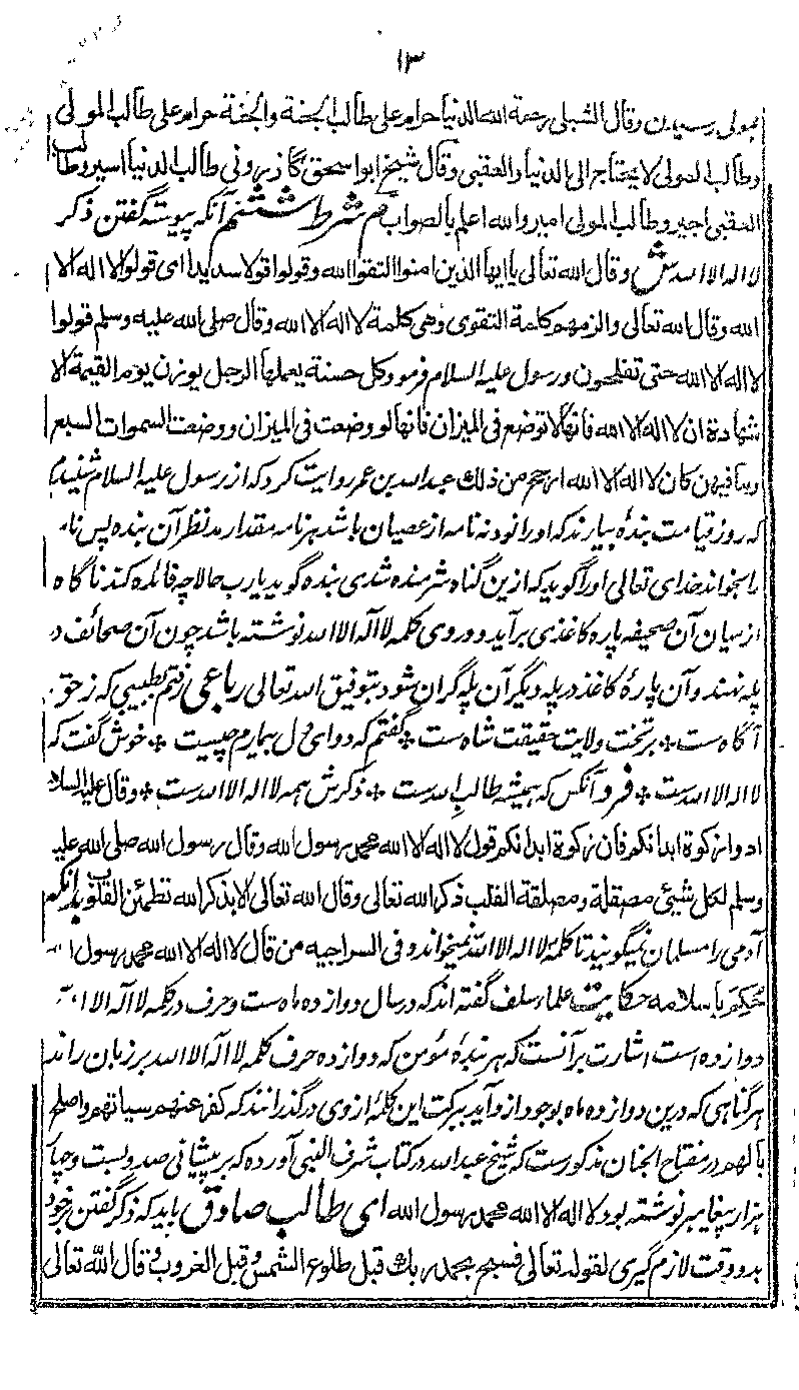 ۱۳
بمولی رسیدن وقال الشبلی رحمة الله الدنیا حرام علی طالب الجنة والجنة حرام علی طالب المولی
وطالب المولی لا یحتاج الی الدنیا والعقبی وقال شیخ ابو اسحق گازرونی طالب الدنیا اسیر وطالب
العقبی اجیر وطالب المولی امیر والله اعلم بالصواب هم شرط ششم آنکه پیوسته گفتن ذکر
لا اله الا الله ش وقال الله تعالی یا ایها الذین امنوا اتقوا الله وقولوا قولا سدیدا ای قولوا لا اله الا
الله وقال الله تعالی والزمهم کلمة التقوی وهی کلمة لا اله الا الله وقال صلی الله علیه وسلم قولوا
لا اله الا الله حتی تفلحون ورسول علیه السلام فرمود کل حسنة یعملها الرجل یوزن یوم القیمة الا
شهادة ان لا اله الا الله فانها لا توضع فی المیزان فانها لو وضعت فی المیزان ووضعت السموات السبع
وما فیهن کان لا اله الا الله ارجح من ذلک عبد الله بن عمر روایت کرد که از رسول علیه السلام شنیدم
که روز قیامت بندۀ بیارند که او را نود نه نامه از عصیان باشد هر نامه مقدار مد نظر آن بنده پس نامه
را بخواند خدای تعالی او را گوید که ازین گناه شرمنده شدی بنده گوید یارب حالا چه فائده کند ناگاه
از میان آن صحیفه پاره کاغذی برآید و در وی کلمه لا اله الا الله نوشته باشد چون آن صحائف در
پله نهند و آن پارۀ کاغذ در پله دیگر آن پله گران شود بتوفیق الله تعالی رباعی رفتم بطبیبی که ز حق
آگاه ست * بر تخت ولایت حقیقت شاه ست * گفتم که دوای دل بیمارم چیست * خوش گفت که
لا اله الا الله ست * فرد آنکس که همیشه طالب الله ست * ذکرش همه لا اله الا الله ست * وقال علیه السلام
ادوا زکوة ابدانکم فان زکوة ابدانکم قول لا اله الا الله محمد رسول الله وقال رسول الله صلی الله علیه
وسلم لکل شیئ مصقلة ومصقلة القلب ذکر الله تعالی وقال الله تعالی الا بذکر الله تطمئن القلوب بدانکه
آدمی را مسلمان نمیگویند تا کلمۀ لا اله الا الله نمیخواند و فی السراجیه من قال لا اله الا الله محمد رسول
یحکم باسلامه حکایت علماء سلف گفته اند که در سال دوازده ماه ست و حرف در کلمه لا اله الا
دوازده است اشارت برآنست که هر بندۀ مؤمن که دوازده حرف کلمه لا اله الا الله بر زبان راند
هر گناهی که درین دوازده ماه بوجود از و آید ببرکت این کلمۀ از وی درگذرانند که کفر عنهم سیاتهم واصلح
بالهم در مفتاح الجنان مذکورست که شیخ عبد الله در کتاب شرف النبی آورده که بر پیشانی صد وبست وچهار
هزار پیغامبر نوشته بود لا اله الا الله محمد رسول الله ای طالب صادق باید که ذکر گفتن بر خود
بدو وقت لازم گیری لقوله تعالی فسبح بحمد ربك قبل طلوع الشمس وقبل الغروب وقال الله تعالی